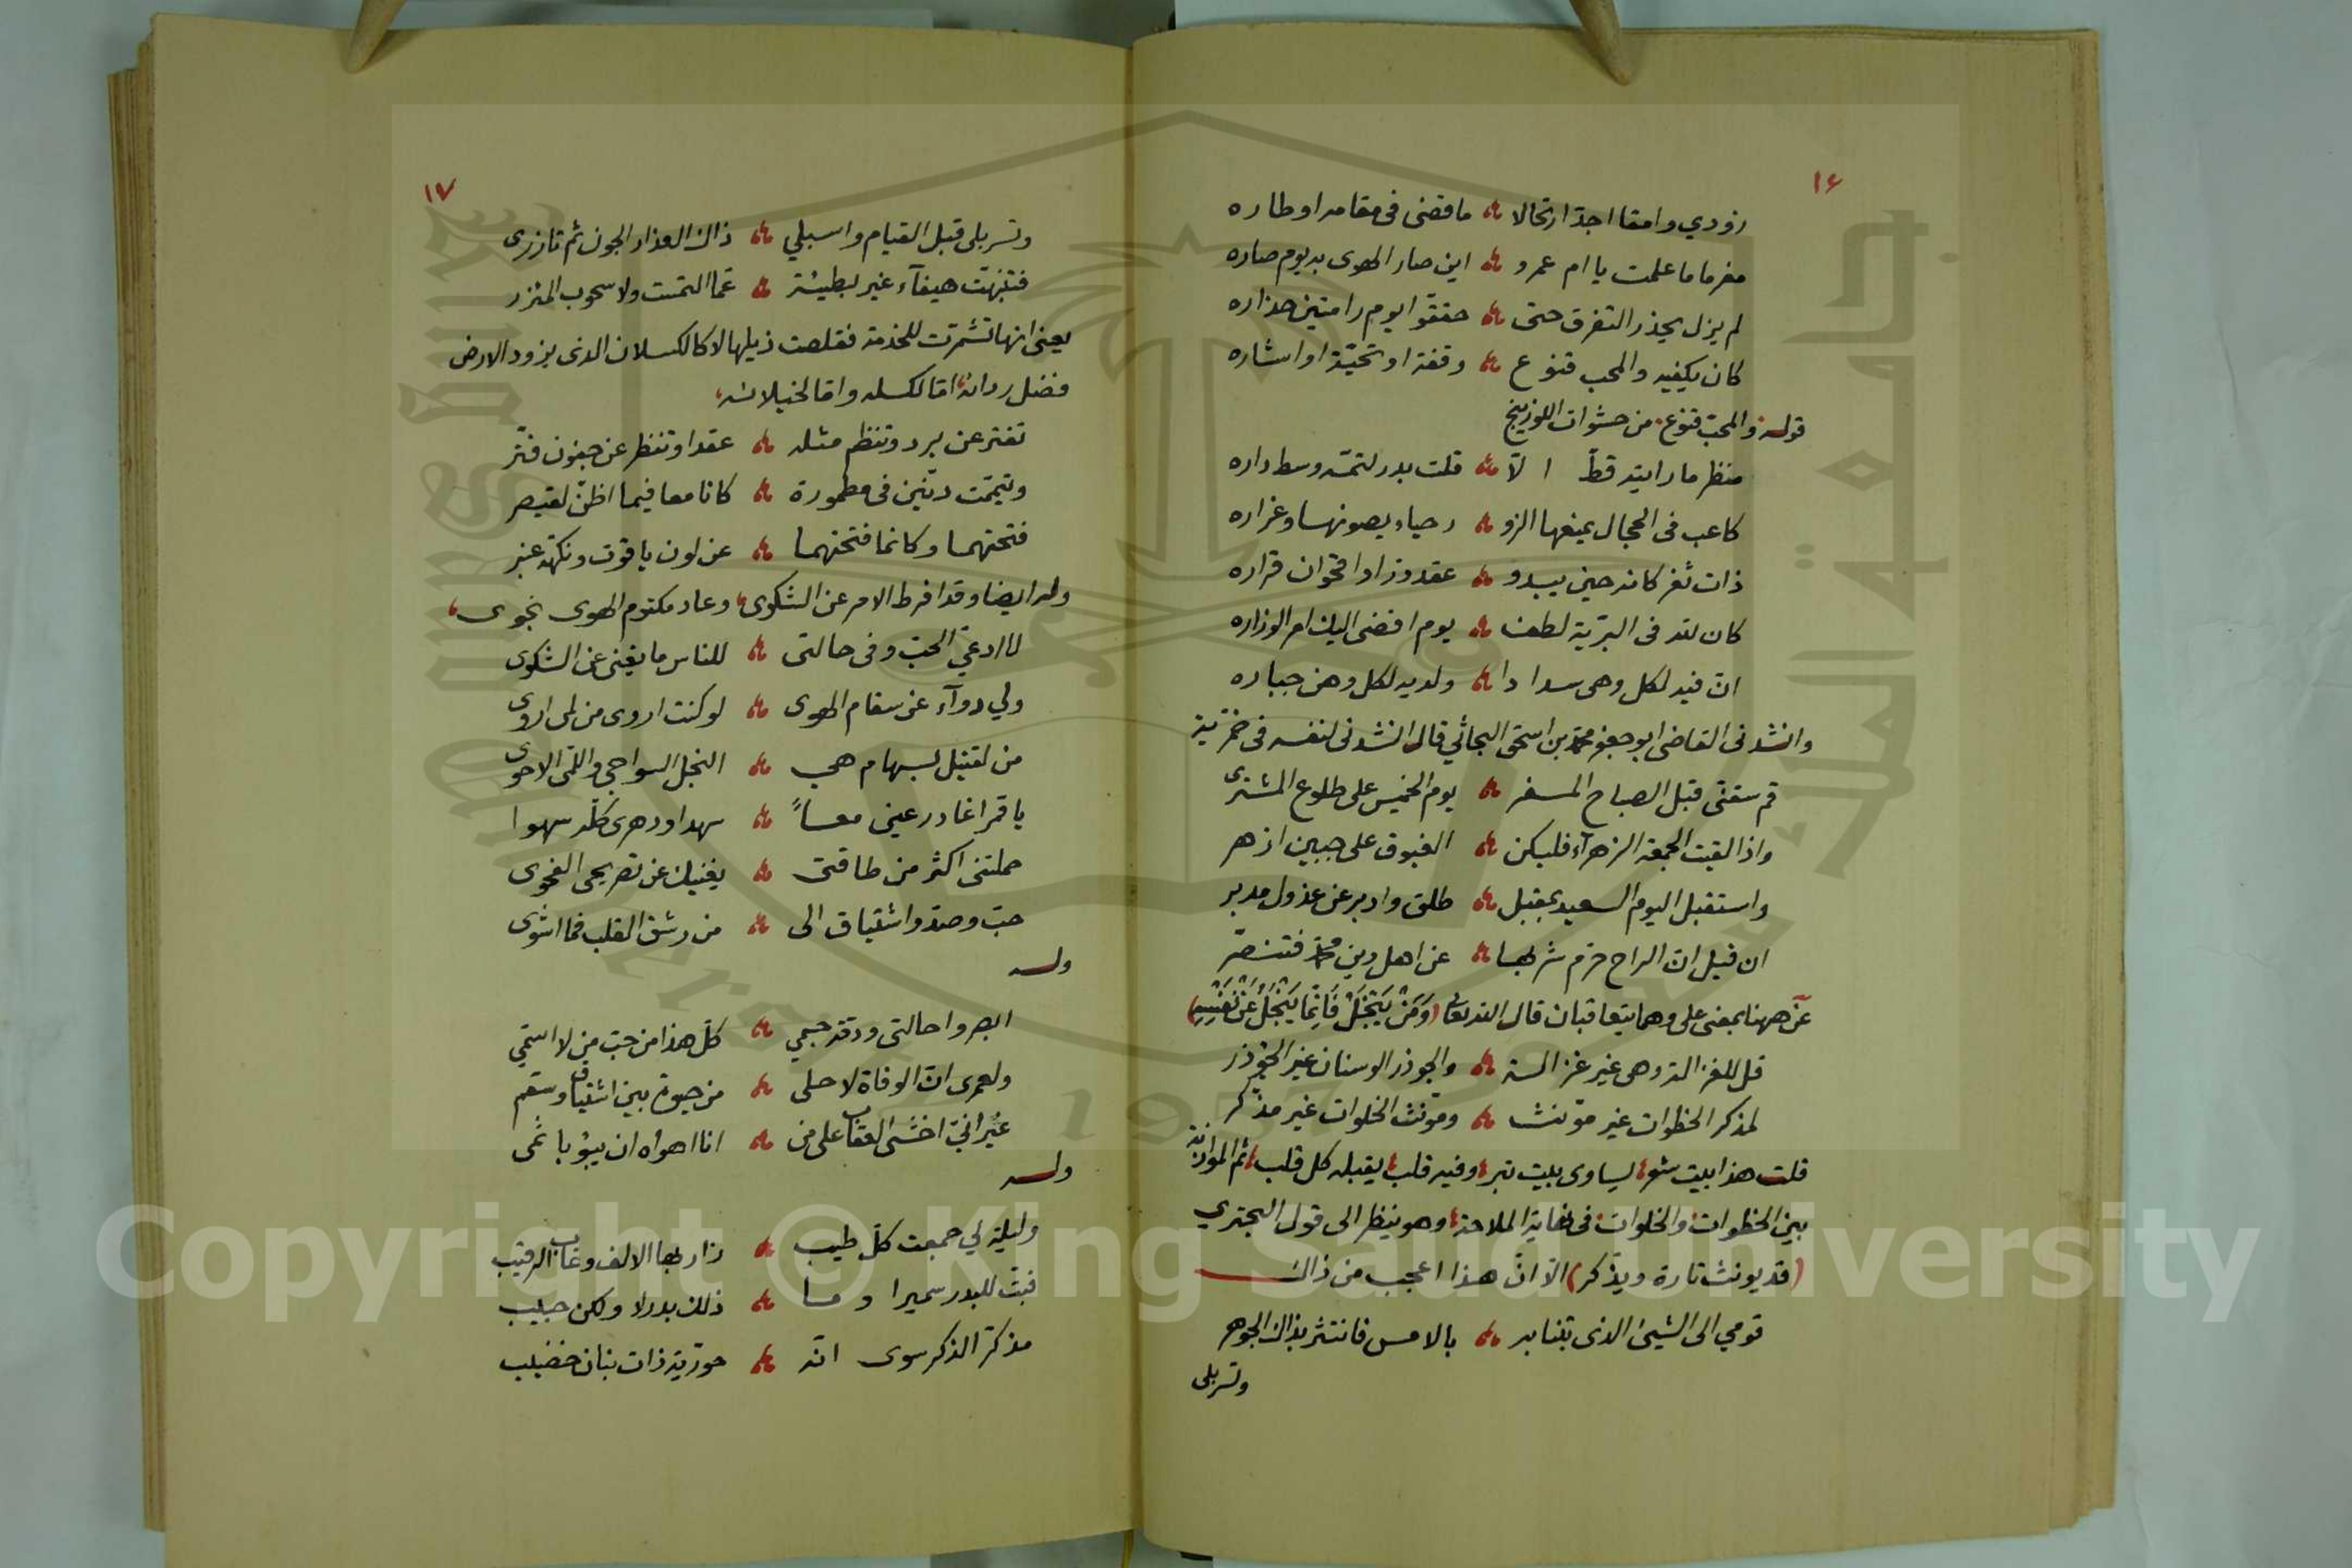 ١٦
زودي وامقا اجدّ ارتحالا ؞ ما قضى فى مقامه اوطاره
مغرما ما علمت يا ام عمرو ؞ اين صار الهوى به يوم صاره
لم يزل يحذر التفرق حتى ؞ حققوا يوم رامتين حذاره
كان يكفيه والمحب قنوع ؞ وقفة او تحيّة او اشاره
قوله والمحبّ قنوع من حشوات اللوزينج
منظر ما رايته قطّ الّا ؞ قلت بدر لتمّه وسط داره
كاعب فى الحجال يمنعها الزو ؞ ر حياء يصونها وغراره
ذات ثغر كانه حين يبدو ؞ عقد در او اقحوان قراره
كان لله فى البريّة لطف ؞ يوم افضى اليك امر الوزاره
انّ فيه لكل وهى سدادا ؞ ولديه لكل وهن جباره
وانشدنى القاضى ابو جعفر محمد بن اسحق البحاثي قال انشدنى لنفسه فى خمريّة
قم سقنى قبل الصباح المسفر ؞ يوم الخميس على طلوع المشترى
واذا لقيت الجمعة الزهرآء فليكن ؞ الغبوق على جبين ازهر
واستقبل اليوم السعيد بمقبل ؞ طلق وادبر عن عذول مدبر
ان قيل انّ الراح حرم شربها ؞ عن اهل دين محمد فتنصّر
عن ههنا بمعنى على وهما يتعاقبان قال الله تعالى (وَمَنْ يَبْخَلْ فَاِنَّمَا يَبْخَلُ عَنْ نَفْسِهِ)
قل للغزالة وهى غير غزالة ؞ والجوذر الوسنان غير الجؤذر
لمذكر الخطوات غير مؤنث ؞ ومؤنث الخلوات غير مذكّر
قلت هذا بيت شعر يساوى بيت تبر وفيه قلب يقبله كل قلب ثم الموازنة
بين الخطوات والخلوات فى نهاية الملاحة وهو ينظر الى قول البحتري
(قد يونث تارة ويذّكر) الّا انّ هذا اعجب من ذاك
قومي الى الشيئ الذى بتنا به ؞ بالامس فانتثر بذاك الجوهر
وتسربلى
١٧
وتسربلى قبل القيام واسبلي ؞ ذاك العذار الجون ثم تازرى
فتنبّهت هيفآء غير بطيئة ؞ عمّا التمست ولا سحوب المئزر
يعنى انها تشمّرت للخدمة فقلصت ذيلها لا كالكسلان الذى يزود الارض
فضل ردائه امّا لكسله وامّا لخيلائه
تفتر عن برد وتنظم مثله ؞ عقدا وتنظر عن جفون فتّر
وتيمّمت دنّين فى مطمورة ؞ كانا معا فيما اظنّ لقيصر
فتحتهما وكانما فتحتهما ؞ عن لون ياقوت ونكهة عنبر
وله ايضا وقد افرط الامر عن الشكوى وعاد مكتوم الهوى نجوى
لا ادعي الحبّ وفى حالتى ؞ للناس ما يغنى عن الشكوى
ولي دوآء عن سقام الهوى ؞ لو كنت اروى من لمى اروى
من لقتيل بسهام هي ؞ النجل السواجي واللمى الاحوى
يا قمرا غادر عينى معاً ؞ سهدا ودهرى كلّه سهوا
حملتنى اكثر من طاقتى ؞ يغنيك عن تصريحى الفحوى
حبّ وصدّ واشتياق الى ؞ من رشق القلب فما اشوى
وله
ابصروا حالتى ودقة جسمي ؞ كلّ هذا من حبّ من لا اسمّي
ولعمرى انّ الوفاة لاحلى ؞ من حيوة بين اشتياق وسقم
غير انّي اخشى العقاب على من ؞ انا اهواه ان يبؤ باثمى
وله
وليلة لي جمعت كلّ طيب ؞ زار بها الالف وغاب الرقيب
فبتّ للبدر سميرا وما ؞ ذلك بدر لا ولكن حبيب
مذكّر الذكر سوى انّه ؞ حوريّة ذات بنان خضيب
Copyright © King Saud University
جامعة الملك سعود